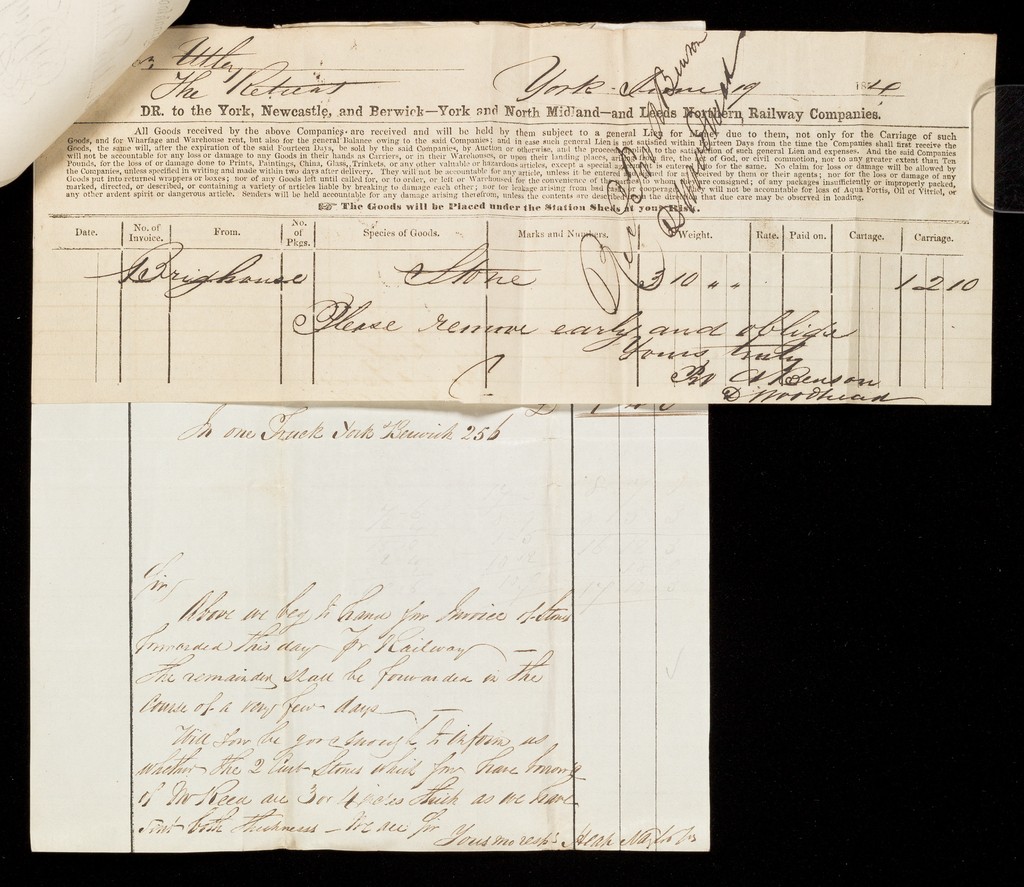 Utley
The Retreat York June 19 184
DR. to the York, Newcastle, and Berwick—York and North Midland—and Leeds Northern Railway Companies.
All Goods received by the above Companies are received and will be held by them subject to a general Lien for Money due to them, not only for the Carriage of such
Goods, and for Wharfage and Warehouse rent, but also for the general Balance owing to the said Companies; and in case such general Lien is not satisfied within Fourteen Days from the time the Companies shall first receive the
Goods, the same will, after the expiration of the said Fourteen Days, be sold by the said Companies, by Auction or otherwise, and the proceeds applied to the satisfaction of such general Lien and expenses. And the said Companies
will not be accountable for any loss or damage to any Goods in their hands as Carriers, or in their Warehouses, or upon their landing places, arising from fire, the act of God, or civil commotion, nor to any greater extent than Ten
Pounds, for the loss of or damage done to Prints, Paintings, China, Glass, Trinkets, or any other valuable or hazardous articles, except a special agreement is entered into for the same. No claim for loss or damage will be allowed by
the Companies, unless specified in writing and made within two days after delivery. They will not be accountable for any article, unless it be entered and signed for as received by them or their agents; nor for the loss or damage of any
Goods put into returned wrappers or boxes; nor of any Goods left until called for, or to order, or left or Warehoused for the convenience of the parties to whom they are consigned; of any packages insufficiently or improperly packed,
marked, directed, or described, or containing a variety of articles liable by breaking to damage each other; nor for leakage arising from bad casks or cooperage. They will not be accountable for loss of Aqua Fortis, Oil of Vitriol, or
any other ardent spirit or dangerous article. Senders will be held accountable for any damage arising therefrom, unless the contents are described upon the direction, that due care may be observed in loading.
☞ The Goods will be Placed under the Station Sheds at your Risk.
Date. No. of Invoice. From. No. of Pkgs. Species of Goods. Marks and Numbers. Weight. Rate. Paid on. Cartage. Carriage.
Brighouse Stone 3 10 " " 1 2 10
Please remove early and oblige
Yours truly
Benson
D Woodhead
Benson
D Woodhead
In one Truck York Berwick 256
Sir
Above we beg to hand you Invoice of Stone
forwarded this day Pr Railway —
the remainder shall be forwarded in the
course of a very few days —
Will you be good enough to inform us
whether the 2 Stones which you have
of Mr Reed are 3 or 4 inches thick as we have
sent both thickness — We are Sir
Yours